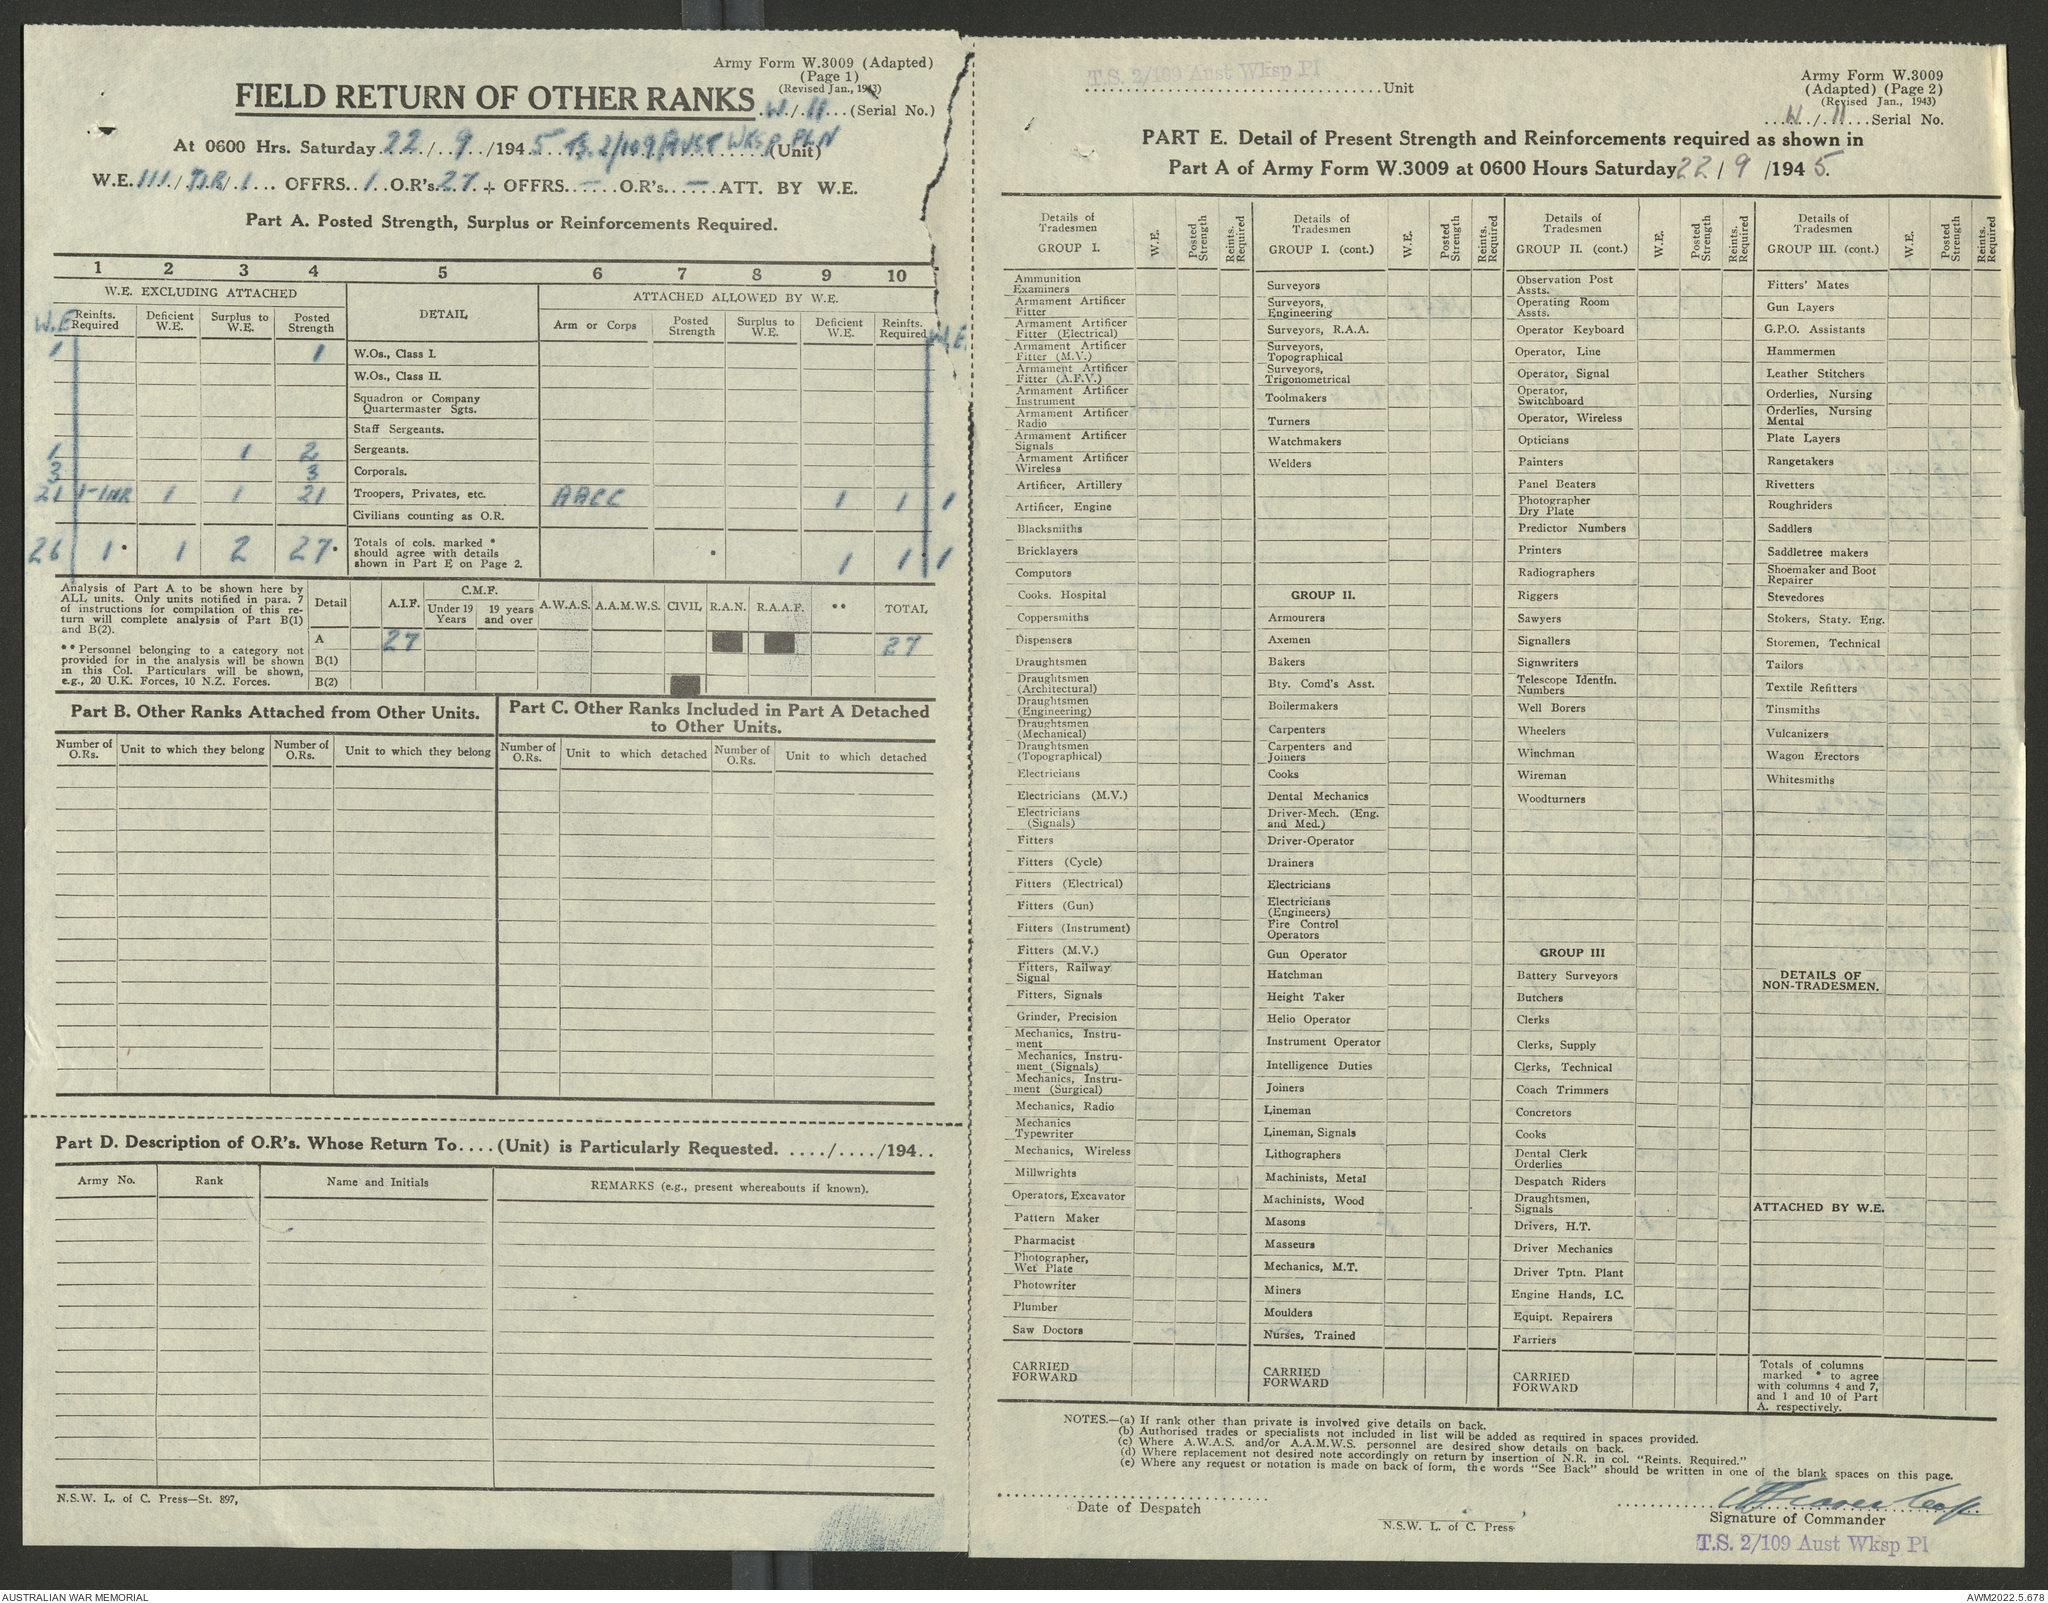 Army Form W.3009 (Adapted)
(Page 1)
(Revised Jan., 1943)
FIELD RETURN OF OTHER RANKS W./.11...(Serial No.)
At 0600 Hrs. Saturday 22/.9./1945 TS.2/109 AUST WKSP PLN (Unit)
W.E. 111/ /1... OFFRS..1..O.R's.27.+ OFFRS..—...O.R's..—..ATT. BY W.E.
Part A. Posted Strength, Surplus or Reinforcements Required.
1 2 3 4 5 6 7 8 9 10
W.E. EXCLUDING ATTACHED DETAIL ATTACHED ALLOWED BY W.E.
W.E Reinfts. Required Deficient W.E. Surplus to W.E. Posted Strength Arm or Corps Posted Strength Surplus to W.E. Deficient W.E. Reinfts. Required W.E.
1 1 W.Os., Class I.
W.Os., Class II.
Squadron or Company
Quartermaster Sgts.
Staff Sergeants.
1 1 2 Sergeants.
3 3 Corporals.
21 1-INR 1 1 21 Troopers, Privates, etc. AACC 1 1 1
Civilians counting as O.R.
26 1* 1 2 27* Totals of cols. marked * should agree with details shown in Part E on Page 2. * 1 1* 1
Analysis of Part A to be shown here by
ALL units. Only units notified in para. 7
of instructions for compilation of this re-
turn will complete analysis of Part B(1)
and B(2).
** Personnel belonging to a category not
provided for in the analysis will be shown
in this Col. Particulars will be shown,
e.g., 20 U.K. Forces, 10 N.Z. Forces.
Detail A.I.F. C.M.F. Under 19 Years 19 years and over A.W.A.S. A.A.M.W.S. CIVIL R.A.N. R.A.A.F. ** TOTAL
A 27 27
B(1)
B(2)
Part B. Other Ranks Attached from Other Units.
Number of O.Rs. Unit to which they belong Number of O.Rs. Unit to which they belong
Part C. Other Ranks Included in Part A Detached
to Other Units.
Number of O.Rs. Unit to which detached Number of O.Rs. Unit to which detached
Part D. Description of O.R's. Whose Return To....(Unit) is Particularly Requested. ...../..../194..
Army No. Rank Name and Initials REMARKS (e.g., present whereabouts if known).
N.S.W. L. of C. Press—St. 897,
T.S. 2/109 Aust Wksp Pl
Unit
Army Form W.3009
(Adapted) (Page 2)
(Revised Jan., 1943)
W./.11...Serial No.
PART E. Detail of Present Strength and Reinforcements required as shown in
Part A of Army Form W.3009 at 0600 Hours Saturday 22/9/1945.
Details of Tradesmen GROUP I. W.E. Posted Strength Reints. Required
Ammunition Examiners
Armament Artificer Fitter
Armament Artificer Fitter (Electrical)
Armament Artificer Fitter (M.V.)
Armament Artificer Fitter (A.F.V.)
Armament Artificer Instrument
Armament Artificer Radio
Armament Artificer Signals
Armament Artificer Wireless
Artificer, Artillery
Artificer, Engine
Blacksmiths
Bricklayers
Computors
Cooks. Hospital
Coppersmiths
Dispensers
Draughtsmen
Draughtsmen (Architectural)
Draughtsmen (Engineering)
Draughtsmen (Mechanical)
Draughtsmen (Topographical)
Electricians
Electricians (M.V.)
Electricians (Signals)
Fitters
Fitters (Cycle)
Fitters (Electrical)
Fitters (Gun)
Fitters (Instrument)
Fitters (M.V.)
Fitters, Railway Signal
Fitters, Signals
Grinder, Precision
Mechanics, Instru-
ment
Mechanics, Instru-
ment (Signals)
Mechanics, Instru-
ment (Surgical)
Mechanics, Radio
Mechanics Typewriter
Mechanics, Wireless
Millwrights
Operators, Excavator
Pattern Maker
Pharmacist
Photographer, Wet Plate
Photowriter
Plumber
Saw Doctors
CARRIED FORWARD
Details of Tradesmen GROUP I. (cont.) W.E. Posted Strength Reints. Required
Surveyors
Surveyors, Engineering
Surveyors, R.A.A.
Surveyors, Topographical
Surveyors, Trigonometrical
Toolmakers
Turners
Watchmakers
Welders
GROUP II.
Armourers
Axemen
Bakers
Bty. Comd's Asst.
Boilermakers
Carpenters
Carpenters and Joiners
Cooks
Dental Mechanics
Driver-Mech. (Eng. and Med.)
Driver-Operator
Drainers
Electricians
Electricians (Engineers)
Fire Control Operators
Gun Operator
Hatchman
Height Taker
Helio Operator
Instrument Operator
Intelligence Duties
Joiners
Lineman
Lineman, Signals
Lithographers
Machinists, Metal
Machinists, Wood
Masons
Masseurs
Mechanics, M.T.
Miners
Moulders
Nurses, Trained
CARRIED FORWARD
Details of Tradesmen GROUP II. (cont.) W.E. Posted Strength Reints. Required
Observation Post Assts.
Operating Room Assts.
Operator Keyboard
Operator, Line
Operator, Signal
Operator, Switchboard
Operator, Wireless
Opticians
Painters
Panel Beaters
Photographer Dry Plate
Predictor Numbers
Printers
Radiographers
Riggers
Sawyers
Signallers
Signwriters
Telescope Identfn. Numbers
Well Borers
Wheelers
Winchman
Wireman
Woodturners
GROUP III
Battery Surveyors
Butchers
Clerks
Clerks, Supply
Clerks, Technical
Coach Trimmers
Concretors
Cooks
Dental Clerk Orderlies
Despatch Riders
Draughtsmen, Signals
Drivers, H.T.
Driver Mechanics
Driver Tptn. Plant
Engine Hands, I.C.
Equipt. Repairers
Farriers
CARRIED FORWARD
Details of Tradesmen GROUP III. (cont.) W.E. Posted Strength Reints. Required
Fitters' Mates
Gun Layers
G.P.O. Assistants
Hammermen
Leather Stitchers
Orderlies, Nursing
Orderlies, Nursing Mental
Plate Layers
Rangetakers
Rivetters
Roughriders
Saddlers
Saddletree makers
Shoemaker and Boot Repairer
Stevedores
Stokers, Staty. Eng.
Storemen, Technical
Tailors
Textile Refitters
Tinsmiths
Vulcanizers
Wagon Erectors
Whitesmiths
DETAILS OF
NON-TRADESMEN.
ATTACHED BY W.E.
Totals of columns
marked * to agree
with columns 4 and 7,
and 1 and 10 of Part
A. respectively.
NOTES.—(a) If rank other than private is involved give details on back.
(b) Authorised trades or specialists not included in list will be added as required in spaces provided.
(c) Where A.W.A.S. and/or A.A.M.W.S. personnel are desired show details on back.
(d) Where replacement not desired note accordingly on return by insertion of N.R. in col. "Reints. Required."
(e) Where any request or notation is made on back of form, the words "See Back" should be written in one of the blank spaces on this page.
Date of Despatch
N.S.W. L. of C. Press
Signature of Commander
T.S. 2/109 Aust Wksp Pl
AUSTRALIAN WAR MEMORIAL
AWM2022.5.678